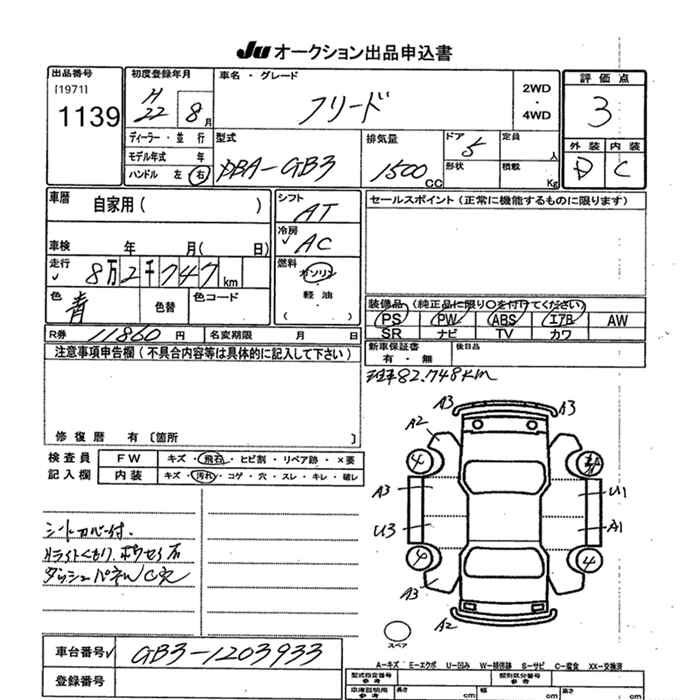 Ju オークション出品申込書
出品番号
[1971]
1139
初度登録年月
H
22
8月
車名・グレード
フリード
2WD
・
4WD
評価点
3
外装 内装
D C
ディーラー・並行
モデル年式 年
ハンドル 左 右
型式
DBA-GB3
排気量
1500
CC
ドア
5
定員
人
形状
積載
Kg
車歴
自家用( )
車検 年 月( 日)
走行
8万2千747km
色
青
色替
色コード
シフト
AT
冷房
AC
燃料
ガソリン
・
軽油
( )
セールスポイント(正常に機能するものに限ります)
装備品(純正品に限り○を付けてください)
PS PW ABS エアB AW
SR ナビ TV カワ
R券 11860 円 名変期限 月 日
新車保証書
有・無
後日品
注意事項申告欄(不具合内容等は具体的に記入して下さい)
82.748km
修復歴 有〔箇所 〕
検査員
記入欄
FW キズ・飛石・ヒビ割・リペア跡・×要
内装 キズ・汚れ・コゲ・穴・スレ・キレ・破レ
シートカバー付.
Hライトくもり.
ダッシュパネルC穴
A3 A3
A2
4
A3 U1
U3 A1
4 4
A3
A2
スペア
車台番号 GB3-1203933
登録番号
A-キズ E-エクボ U-凹み W-補修跡 S-サビ C-腐食 XX-交換済
型式指定番号
参考
類別区分番号
参考
車庫証明用
参考
長さ cm 幅 cm 高さ cm